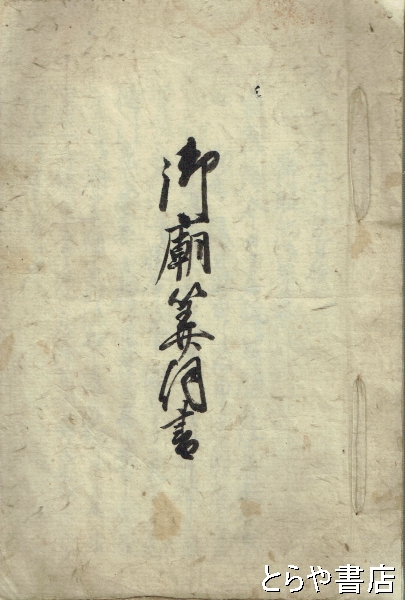 御廟算何書
とらや書店